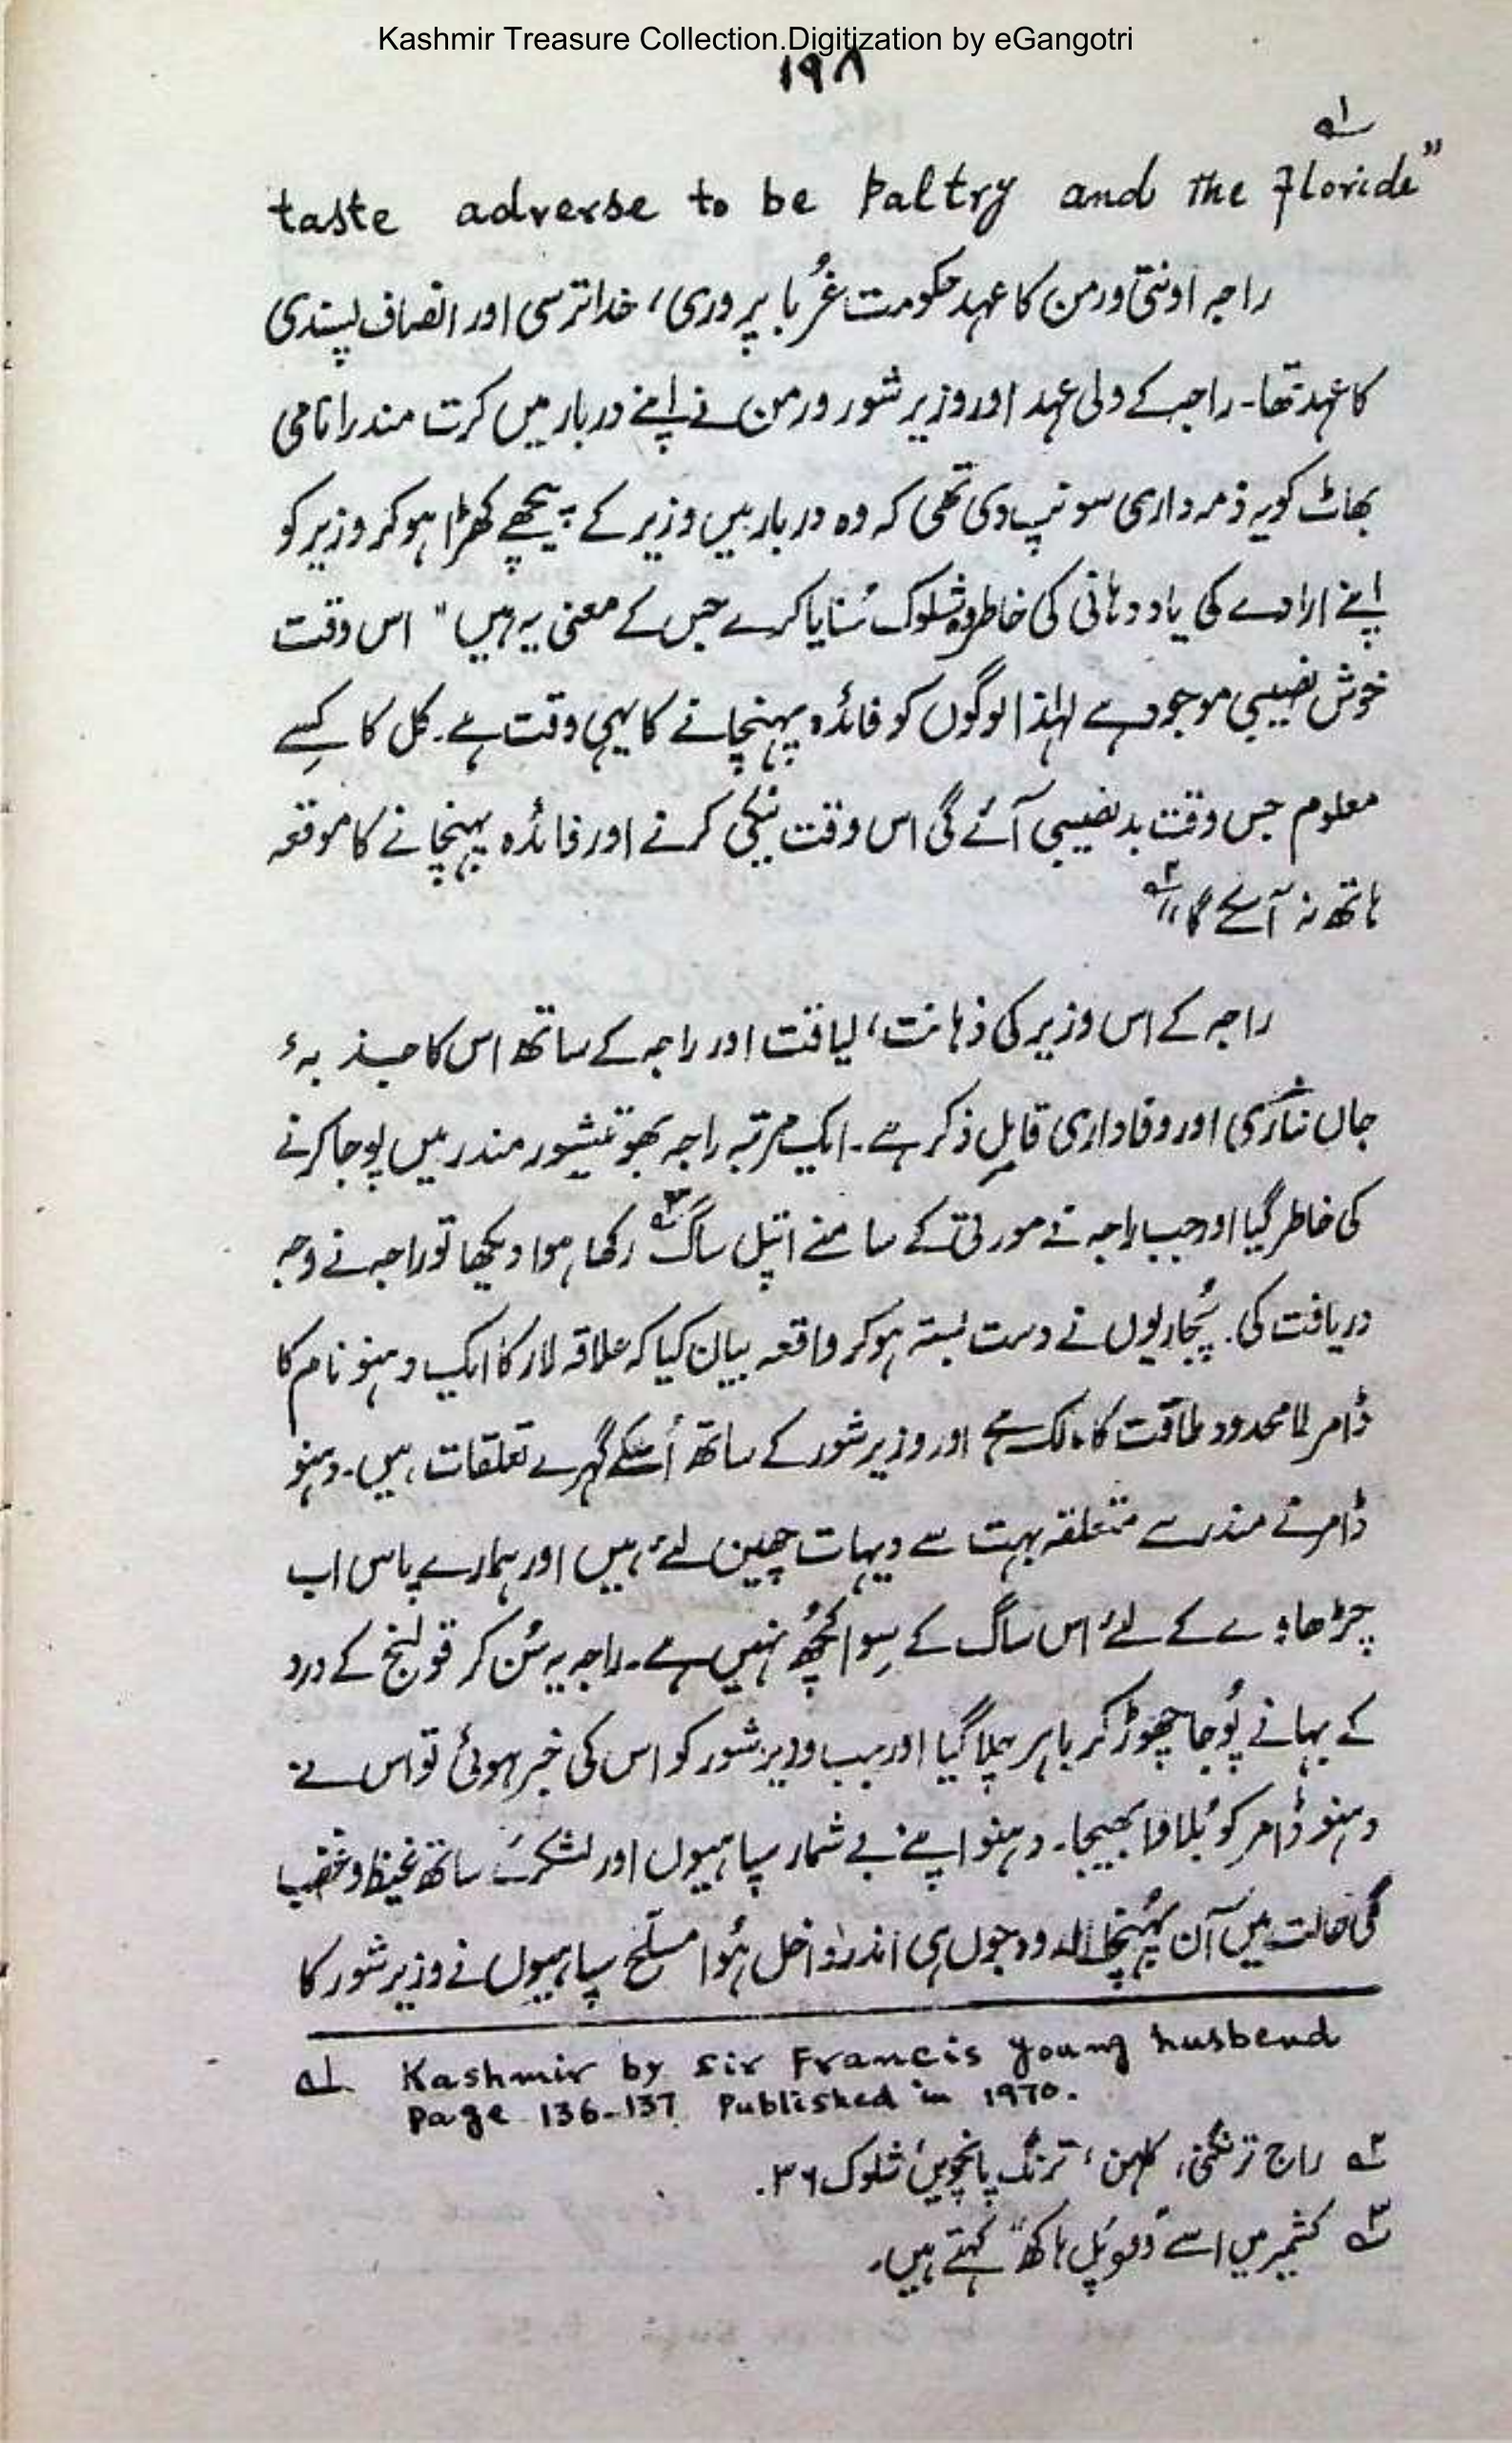 Kashmir Treasure Collection.Digitization by eGangotri
۱۹۸
taste adverse to be Paltry and the Floride" ۱؎
راجہ اونتی ورمن کا عہد حکومت غُربا پروری، خدا ترسی اور انصاف پسندی
کا عہد تھا۔ راجہ کے ولی عہد اور وزیر شور ورمن نے اپنے دربار میں کرت مندرا نامی
بھاٹ کو یہ ذمہ داری سونپ دی تھی کہ وہ دربار میں وزیر کے پیچھے کھڑا ہو کر وزیر کو
اپنے ارادے کی یاد دہانی کی خاطر وہ شلوک سُنایا کرے جس کے معنی یہ ہیں "اس وقت
خوش نصیبی موجود ہے لہٰذا لوگوں کو فائدہ پہنچانے کا یہی وقت ہے۔ کل کا کِسے
معلوم جس وقت بد نصیبی آئے گی اس وقت نیکی کرنے اور فائدہ پہنچانے کا موقعہ
ہاتھ نہ آسکے گا" ۲؎
راجہ کے اس وزیر کی ذہانت، لیاقت اور راجہ کے ساتھ اس کا جذبہٴ
جاں نثاری اور وفاداری قابلِ ذکر ہے۔ ایک مرتبہ راجہ بھوتیشور مندر میں پوجا کرنے
کی خاطر گیا اور جب راجہ نے مورتی کے سامنے اتپل ساگ ۳؎ رکھا ہوا دیکھا تو راجہ نے وجہ
دریافت کی۔ پُجاریوں نے دست بستہ ہو کر واقعہ بیان کیا کہ علاقہ لار کا ایک دہنو نام کا
ڈامر لامحدود طاقت کا مالک ہے اور وزیر شور کے ساتھ اُسکے گہرے تعلقات ہیں۔ دہنو
ڈامر نے مندر سے متعلقہ بہت سے دیہات چھین لئے ہیں اور ہمارے پاس اب
چڑھاوے کے لئے اس ساگ کے سِوا کچُھ نہیں ہے۔ راجہ یہ سُن کر قولنج کے درد
کے بہانے پُوجا چھوڑ کر باہر چلا گیا اور جب وزیر شور کو اس کی خبر ہوئی تو اس نے
دہنو ڈامر کو بُلاوا بھیجا۔ دہنو اپنے بے شمار سپاہیوں اور لشکر کے ساتھ غیظ و غضب
کی حالت میں آن پہُنچا اور وہ جوں ہی اندر داخل ہُوا مسلّح سپاہیوں نے وزیر شور کا
۱؎ Kashmir by Sir Francis Young husbend
Page 136-137. Published in 1970.
۲؎ راج ترنگنی، کلہن، ترنگ پانچویں شلوک ۳۶.
۳؎ کشمیر میں اسے "وپل ہاکھ" کہتے ہیں۔